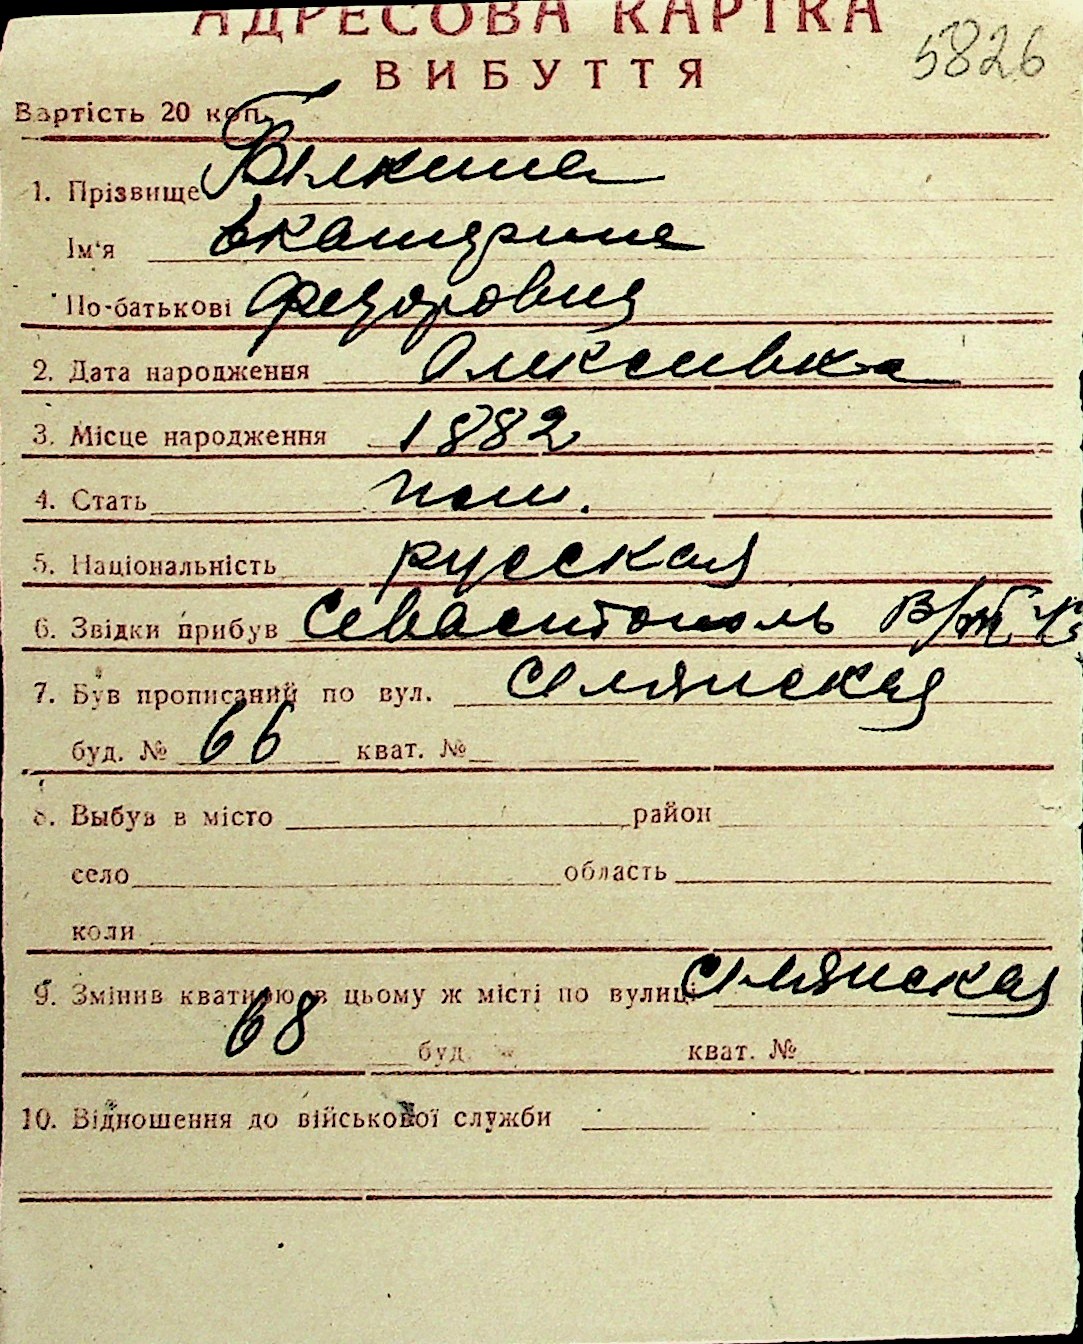 АДРЕСОВА КАРТКА
ВИБУТТЯ
5826
Вартість 20 коп.
1. Прізвище Білкина
Ім'я Екатерина
По-батькові Федоровна
2. Дата народження
3. Місце народження 1882
4. Стать
5. Національність русская
6. Звідки прибув Севастополь
7. Був прописаний по вул.
буд. № 66 кват. №
8. Выбув в місто район
село область
коли
9. Змінив кватирю в цьому ж місті по вулиці
68 буд. кват. №
10. Відношення до військової служби